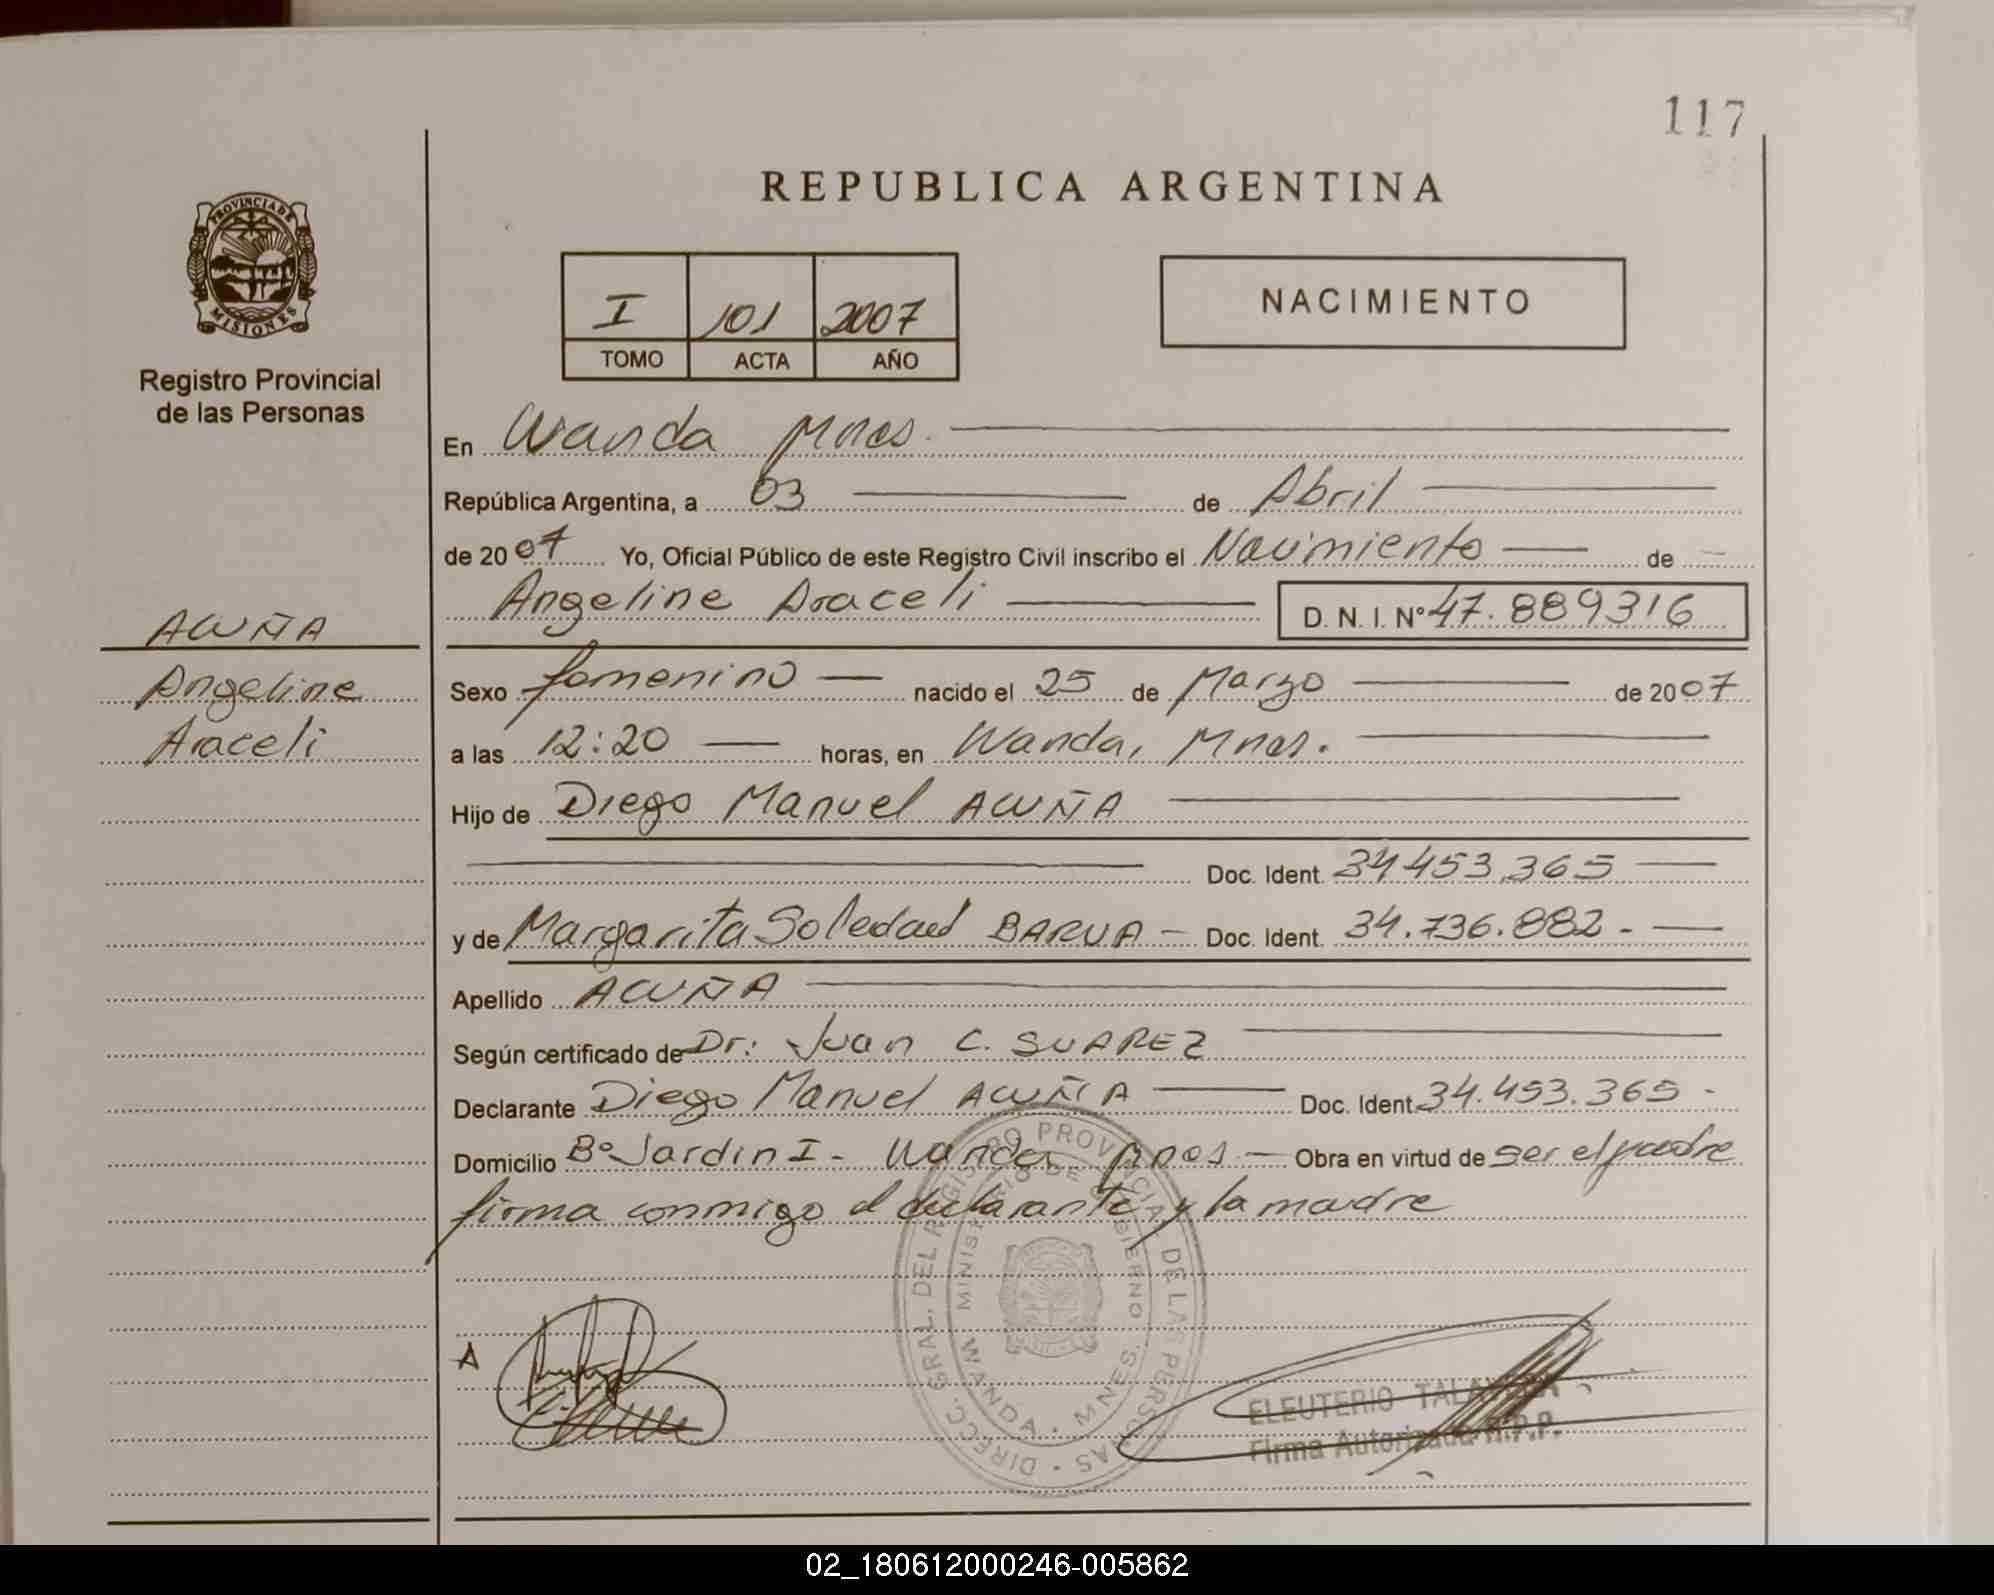 117
REPUBLICA ARGENTINA
PROVINCIA DE
MISIONES
Registro Provincial
de las Personas
I 101 2007
TOMO ACTA AÑO
NACIMIENTO
En Wanda Mnes.
República Argentina, a 03 de Abril
de 2007 Yo, Oficial Público de este Registro Civil inscribo el Nacimiento de
Angeline Araceli D. N. I. Nº 47.889316
ACUÑA
Angeline
Araceli
Sexo femenino nacido el 25 de Marzo de 2007
a las 12:20 horas, en Wanda, Mnes.
Hijo de Diego Manuel ACUÑA
Doc. Ident. 34.453.365
y de Margarita Soledad BARUA Doc. Ident. 34.736.882.-
Apellido ACUÑA
Según certificado de Dr: Juan C. SUAREZ
Declarante Diego Manuel ACUÑA Doc. Ident. 34.453.365 -
Domicilio Bº Jardin I - Wanda Mnes - Obra en virtud de ser el padre
firma conmigo el declarante y la madre
DIRECC. GRAL. DEL REGISTRO PROVINCIAL DE LAS PERSONAS
MINISTERIO DE GOBIERNO
WANDA - MNES.
A
ELEUTERIO
Firma Autorizada R.P.P.
02_180612000246-005862